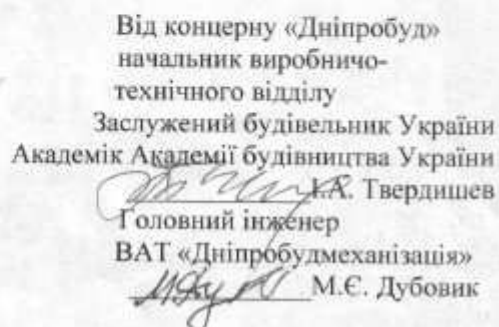 Від концерну «Дніпробуд»
начальник виробничо-
технічного відділу
Заслужений будівельник України
Академік Академії будівництва України
І.А. Твердишев
Головний інженер
ВАТ «Дніпробудмеханізація»
М.Є. Дубовик